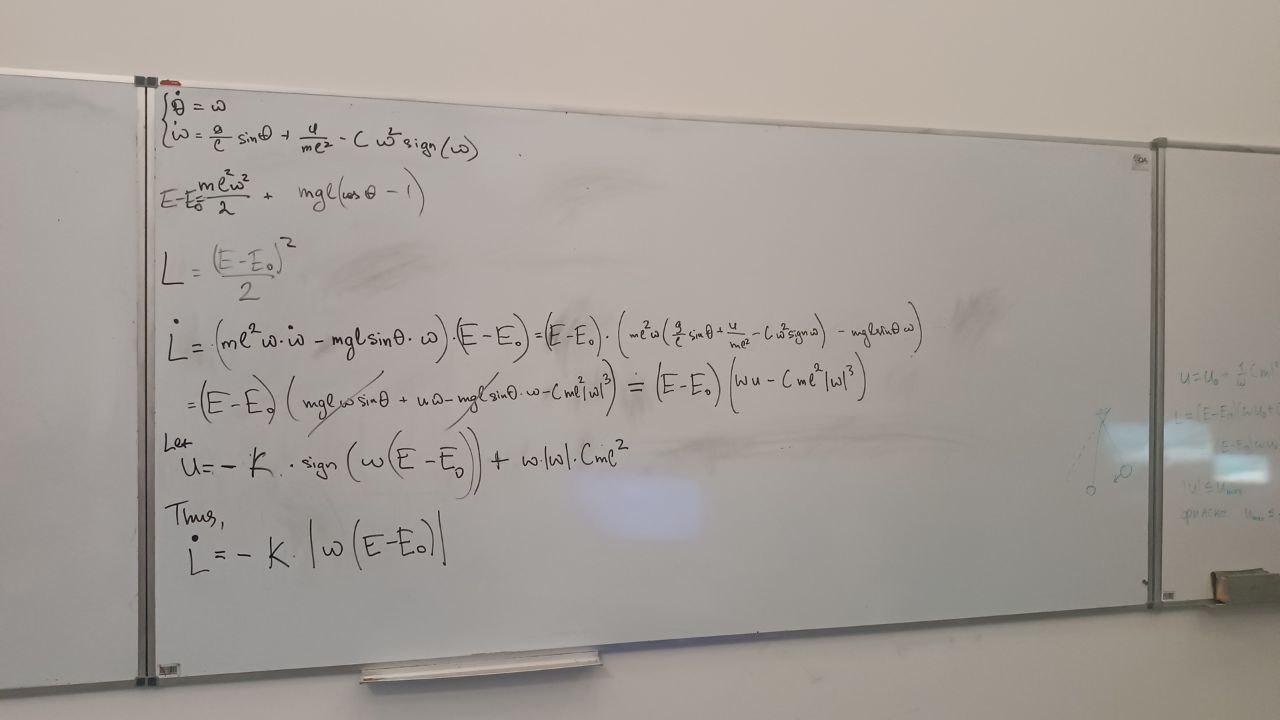 { θ̇ = ω
ω̇ = g/l sinθ + u/ml² - C ω² sign(ω)
E-E₀ = ml²ω²/2 + mgl(cos θ - 1)
L = (E-E₀)²/2
L̇ = (ml²ω·ω̇ - mglsinθ·ω)·(E-E₀) = (E-E₀)·(ml²ω(g/l sinθ + u/ml² - Cω²signω) - mglsinθ ω)
= (E-E₀) (mglωsinθ + uω - mglsinθ·ω - Cml²|ω|³) = (E-E₀) (ωu - Cml²|ω|³)
Let
u = - K · sign (ω(E-E₀)) + ω·|ω|·Cml²
Thus,
L̇ = - K · |ω(E-E₀)|